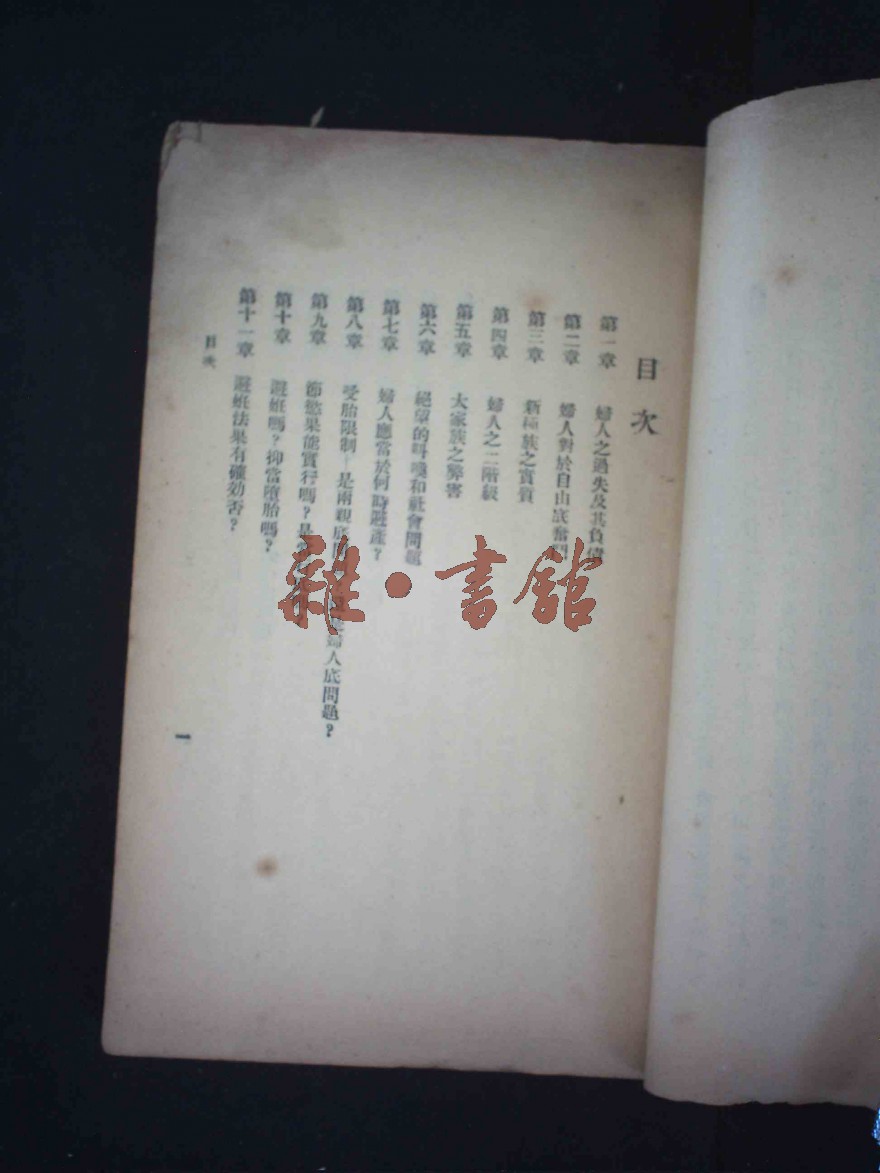 目次
第一章 婦人之過失及其負債
第二章 婦人對於自由底奮鬥
第三章 新種族之實質
第四章 婦人之二階級
第五章 大家族之弊害
第六章 絕望的叫喚和社會問題
第七章 婦人應當於何時避產？
第八章 受胎限制—是兩親底問 婦人底問題？
第九章 節慾果能實行嗎？是
第十章 避妊嗎？抑當墮胎嗎？
第十一章 避妊法果有確効否？
目次
一
雜·書館